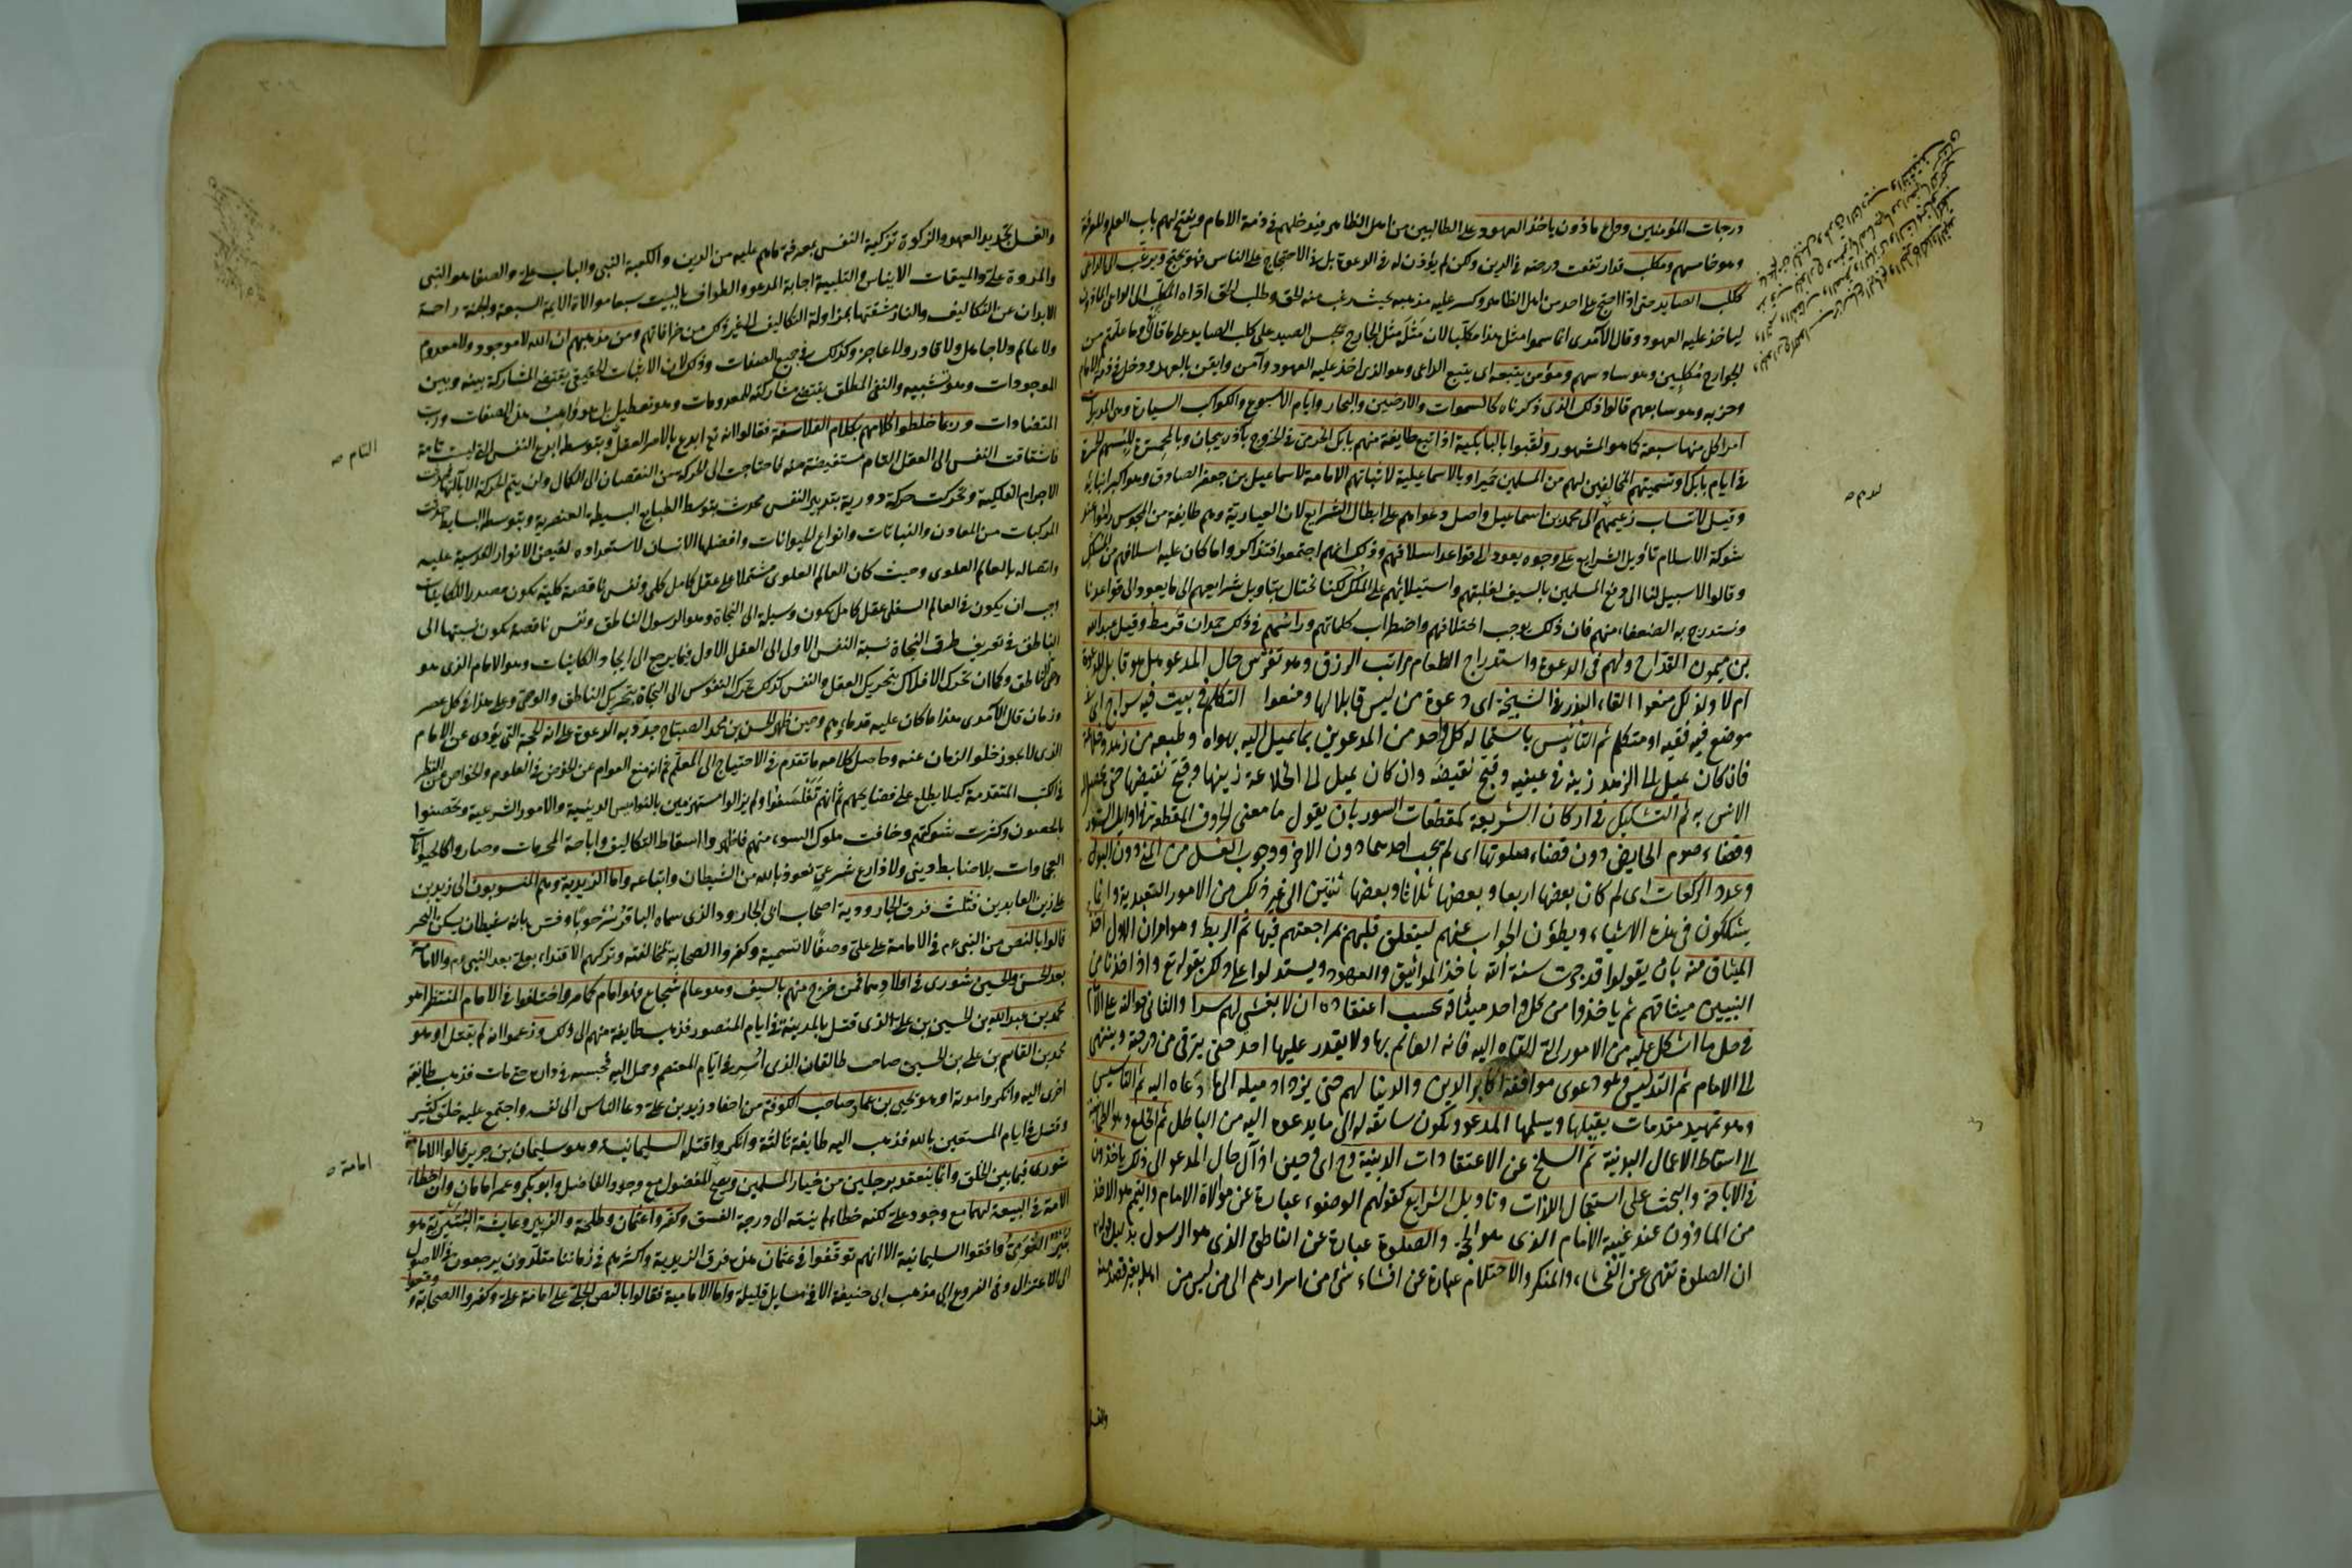 درجات المؤمنين وداع ماذون ياخذ العهود على الطالبين من اهل الظاهر فيدخلهم في ذمة الامام ويفتح لهم باب العلم والمعرفة
وهو خامسهم ومكلب قد ارتفعت درجته في الدين ولكن لم يؤذن له في الدعوة بل في الاحتجاج على الناس فهو يحتج ويرغب الى الداعي
ككلب الصايد حتى اذا احتج على احد من اهل الظاهر وكسر عليه مذهبه بحيث رغب عنه وطلب الحق اداه المكلب الى الداعي الماذون
لياخذ عليه العهود وقال الآمدي انما سموا مثل هذا مكلبا لان مثله مثل الجارح يحبس الصيد على كلب الصايد على ما قال تع وما علمتم من
الجوارح مكلبين وهو سادسهم ومؤمن يتبعه اي يتبع الداعي وهو الذي اخذ عليه العهود وآمن وايقن بالعهد ودخل في ذمة الامام
وحزبه وهو سابعهم قالوا ذلك الذي ذكرناه كالسموات والارضين والبحار وايام الاسبوع والكواكب السيارة وهي المدبرات
امرا كل منها سبعة كما هو المشهور ولقبوا بالبابكية اذ اتبع طايفة منهم بابك الخرمي في الخروج بآذربيجان وبالمحمرة للبسهم الحمرة
في ايام بابك او تسميتهم المخالفين لهم من المسلمين حميرا وبالاسماعيلية لاثباتهم الامامة لاسماعيل بن جعفر الصادق وهو اكبر ابنائه
وقيل لانتساب زعيمهم الى محمد بن اسماعيل واصل دعواهم على ابطال الشرايع لان العيارية وهم طايفة من المجوس راموا عند
شوكة الاسلام تأويل الشرايع على وجوه يعود الى قواعد اسلافهم وذلك انهم اجتمعوا فتذاكروا ما كان عليه اسلافهم من الملك
وقالوا لا سبيل لنا الى دفع المسلمين بالسيف لغلبتهم واستيلائهم على الملك لكنا نحتال بتاويل شرايعهم الى ما يعود الى قواعدنا
ونستدرج به الضعفاء منهم فان ذلك يوجب اختلافهم واضطراب كلماتهم وراسهم في ذلك حمدان قرمط وقيل عبد الله
بن ميمون القداح ولهم في الدعوة واستدراج الطعام مراتب الرزق وهو تفرس حال المدعو هل هو قابل للدعوة
ام لا ولذلك منعوا القاء البذر في السبخة اي دعوة من ليس قابلا لها ومنعوا التكلم في بيت فيه سراج اي في
موضع فيه فقيه او متكلم ثم التأنيس باستمالة كل واحد من المدعوين بما يميل اليه بهواه وطبعه من زهد وخلاعة
فان كان يميل الى الزهد زينه في عينيه وقبح نقيضه وان كان يميل الى الخلاعة زينها وقبح نقيضها حتى يحصل له
الانس به ثم التشكيك في اركان الشريعة كمقطعات السور بان يقول ما معنى الحروف المقطعة في اوايل السور
وقضاء صوم الحايض دون قضاء صلوتها اي لم يجب احدهما دون الاخر ووجوب الغسل من المني دون البول
وعدد الركعات اي لم كان بعضها اربعا وبعضها ثلاثا وبعضها ثنتين الى غير ذلك من الامور التعبدية وانما
يشككون في هذه الاشياء ويطوون الجواب عنهم ليتعلق قلبهم بمراجعتهم فيها ثم الربط وهو امران الاول اخذ
الميثاق منه بان يقولوا قد جرت سنة الله باخذ المواثيق والعهود ويستدلوا على ذلك بقوله تع واذ اخذنا من
النبيين ميثاقهم ثم ياخذوا من كل واحد ميثاقه بحسب اعتقاده ان لا يفشي لهم سرا والثاني حوالته على الامام
في حل ما اشكل عليه من الامور التي القاه اليه فانه العالم بها ولا يقدر عليها احد حتى يترقى من درجة وينتهي
الى الامام ثم التدليس وهو دعوى موافقة اكابر الدين والدنيا لهم حتى يزداد ميله الى ما دعاه اليه ثم التأسيس
وهو تمهيد مقدمات يقبلها ويسلمها المدعو وتكون سائقة له الى ما يدعوه اليه من الباطل ثم الخلع وهو الطمأنينة
الى اسقاط الاعمال البدنية ثم السلخ عن الاعتقادات الدينية وح اي وحين اذ آل حال المدعو الى ذلك ياخذون
في الاباحة والحث على استعجال اللذات وتاويل الشرايع كقولهم الوضوء عبارة عن موالاة الامام والتيمم هو الاخذ
من الماذون عند غيبة الامام الذي هو الحجة والصلوة عبارة عن الناطق الذي هو الرسول بدليل قوله تع
ان الصلوة تنهى عن الفحشاء والمنكر والاحتلام عبارة عن افشاء شئ من اسرارهم الى من ليس من اهله بغير قصد منه
والغسل
والغسل تجديد العهد والزكوة تزكية النفس بمعرفة ما هم عليه من الدين والكعبة النبي والباب علي والصفا هو النبي
والمروة علي والميقات الايناس والتلبية اجابة المدعو والطواف بالبيت سبعا موالاة الايمة السبعة والجنة راحة
الابدان عن التكاليف والنار مشقتها بمزاولة التكاليف الى غير ذلك من خرافاتهم ومن مذهبهم ان الله لا موجود ولا معدوم
ولا عالم ولا جاهل ولا قادر ولا عاجز وكذلك في جميع الصفات وذلك لان الاثبات الحقيقي يقتضي المشاركة بينه وبين
الموجودات وهو تشبيه والنفي المطلق يقتضي مشاركته للمعدومات وهو تعطيل بل هو واهب هذه الصفات ورب
المتضادات وربما خلطوا كلامهم بكلام الفلاسفة فقالوا انه تع ابدع بالامر العقل وبتوسطه ابدع النفس التي ليست تامة
فاشتاقت النفس الى العقل التام مستفيضة منه فاحتاجت الى الحركة من النقصان الى الكمال ولن يتم الحركة الا بآلتها فحدثت
الاجرام الفلكية وتحركت حركة دورية بتدبير النفس فحدثت بتوسط الطبايع البسيطة العنصرية وبتوسط البسايط حدثت
المركبات من المعادن والنباتات وانواع الحيوانات وافضلها الانسان لاستعداده لفيض الانوار القدسية عليه
واتصاله بالعالم العلوي وحيث كان العالم العلوي مشتملا على عقل كامل كلي ونفس ناقصة كلية تكون مصدر الكاينات
وجب ان يكون في العالم السفلي عقل كامل يكون وسيلة الى النجاة وهو الرسول الناطق ونفس ناقصة تكون نسبتها الى
الناطق في تعريف طرق النجاة نسبة النفس الاولى الى العقل الاول فيما يرجع الى ايجاد الكاينات وهو الامام الذي هو
وصي الناطق وكما ان تحرك الافلاك بتحريك العقل والنفس كذلك تحرك النفوس الى النجاة بتحريك الناطق والوصي وعلى هذا في كل عصر
وزمان قال الآمدي هذا ما كان عليه قدماؤهم وحين ظهر الحسن بن محمد الصباح جدد به الدعوة على انه الحجة التي يؤدي عن الامام
الذي لا يجوز خلو الزمان عنه وحاصل كلامه ما تقدم في الاحتياج الى المعلم ثم انه منع العوام عن الخوض في العلوم والخواص عن النظر
في الكتب المتقدمة كيلا يطلع على فضايحهم ثم انهم تفلسفوا ولم يزالوا مستهزئين بالنواميس الدينية والامور الشرعية وتحصنوا
بالحصون وكثرت شوكتهم وخافت ملوك السوء منهم فاظهروا اسقاط التكاليف واباحة المحرمات وصاروا كالحيوانات
العجماوات بلا ضابط ديني ولا وازع شرعي نعوذ بالله من الشيطان واتباعه واما الزيدية وهم المنسوبون الى زيد بن
علي زين العابدين فثلث فرق الجارودية اصحاب ابي الجارود الذي سماه الباقر سرحوبا وفسر بانه شيطان يسكن البحر
قالوا بالنص من النبي عم في الامامة على علي وصفا لا تسمية وكفروا الصحابة لمخالفته وتركهم الاقتداء بعلي بعد النبي عم والامامة
بعد الحسن والحسين شورى في اولادهما فمن خرج منهم بالسيف وهو عالم شجاع فهو امام كما مر واختلفوا في الامام المنتظر اهو
محمد بن عبد الله بن الحسين بن علي الذي قتل بالمدينة في ايام المنصور فذهب طايفة منهم الى ذلك وزعموا انه لم يقتل او هو
محمد بن القاسم بن علي بن الحسين صاحب طالقان الذي اسر في ايام المعتصم وحمل اليه فحبسه في داره حتى مات فذهب طائفة
اخرى اليه وانكروا موته او هو يحيى بن عمار صاحب الكوفة من احفاد زيد بن علي دعا الناس الى نفسه واجتمع عليه خلق كثير
وقتل في ايام المستعين بالله فذهب اليه طايفة ثالثة وانكروا قتله السليمانية وهو سليمان بن جرير قالوا الامامة
شورى فيما بين الخلق وانما ينعقد برجلين من خيار المسلمين ويصح المفضول مع وجود الفاضل وابو بكر وعمر امامان وان اخطأ
الامة في البيعة لهما مع وجود علي لكنه خطاء لم ينته الى درجة الفسق وكفروا عثمان وطلحة والزبير وعايشة البتيرية هو
بتير الثومي وافقوا السليمانية الا انهم توقفوا في عثمان هذه فرق الزيدية واكثرهم في زماننا مقلدون يرجعون في الاصول
الى الاعتزال وفي الفروع الى مذهب ابي حنيفة الا في مسايل قليلة واما الامامية فقالوا بالنص الجلي على امامة علي وكفروا الصحابة ووقعوا
التام صح
امامة صح